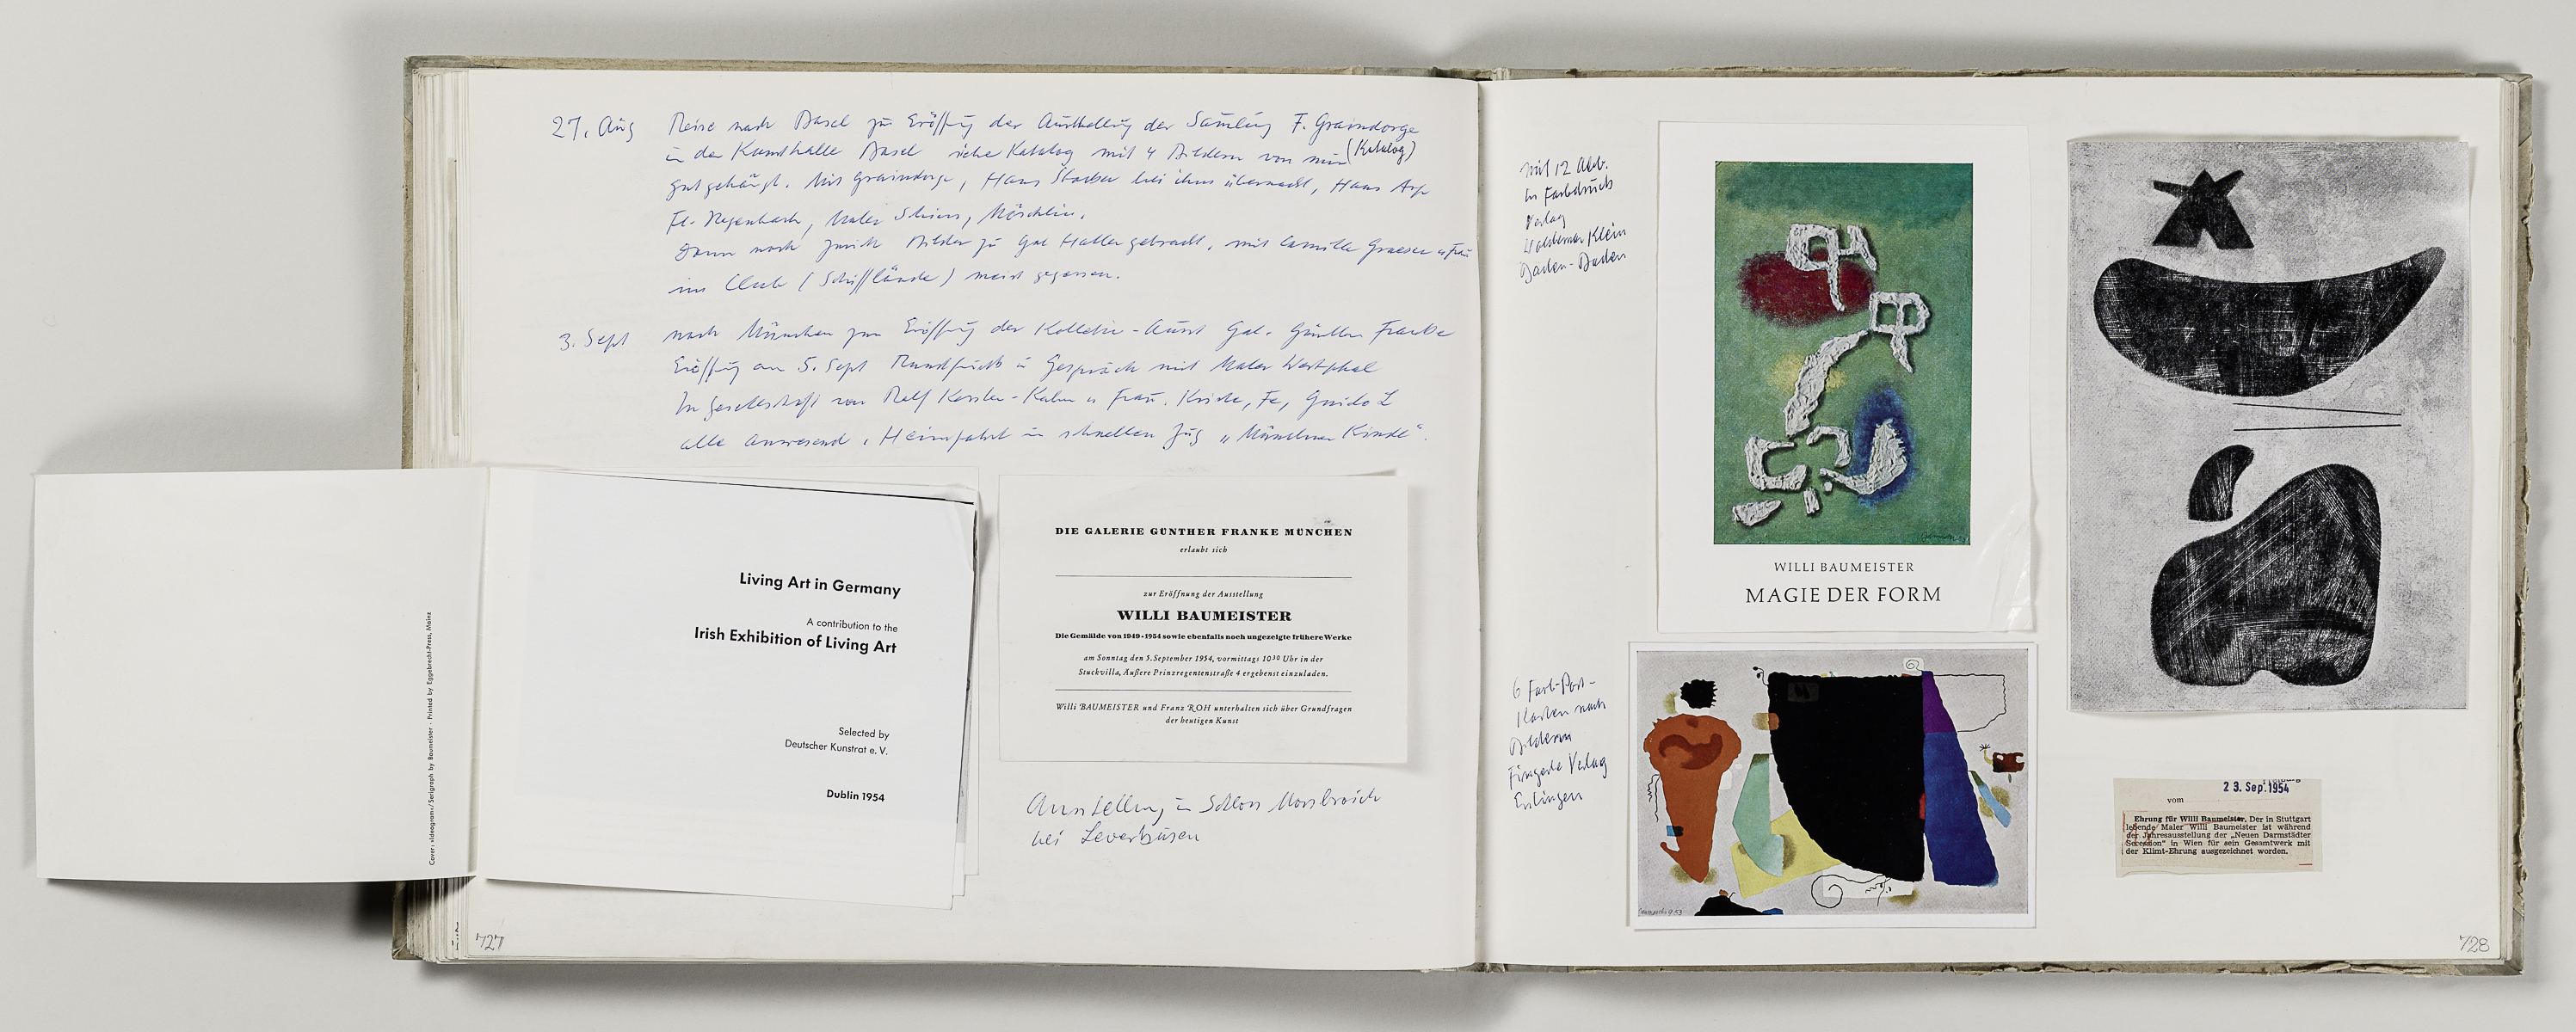 27. Aug Reise nach Basel zu Eröffnung der Ausstellung der Samlung F. Graindorge
in der Kunsthalle Basel siehe Katalog mit 4 Bildern von mir (Katalog)
gut gehängt. Mit Graindorge, Hans bei ihm übernacht, Hans Arp
Maler
Dann nach Zürich Bilder zu Gal Haller gebracht, mit Camille Graeser u Frau
im Club (Schifflände) meist gegessen.
3. Sept nach München zur Eröffnung der Kollektiv-Ausst Gal. Günther Franke
Eröffnung am 5. Sept Gespräch mit Maler Westphal
In Gesellschaft von u Frau. Guido L
alle anwesend, Heimfahrt in schnellem Zug „Münchner Kindl“.
Cover: »Ideogram«/Serigraph by Baumeister · Printed by Eggebrecht-Press, Mainz
Living Art in Germany
A contribution to the
Irish Exhibition of Living Art
Selected by
Deutscher Kunstrat e. V.
Dublin 1954
DIE GALERIE GÜNTHER FRANKE MÜNCHEN
erlaubt sich
zur Eröffnung der Ausstellung
WILLI BAUMEISTER
Die Gemälde von 1949-1954 sowie ebenfalls noch ungezeigte frühere Werke
am Sonntag den 5. September 1954, vormittags 10³⁰ Uhr in der
Stuckvilla, Äußere Prinzregentenstraße 4 ergebenst einzuladen.
Willi BAUMEISTER und Franz ROH unterhalten sich über Grundfragen
der heutigen Kunst
Ausstellung in Schloss Morsbroich
bei Leverkusen
727
mit 12 Abb.
in Farbdruck
Verlag
Woldemar Klein
Baden-Baden
WILLI BAUMEISTER
MAGIE DER FORM
6 Farb-Post-
karten nach
Bildern
Fingerle Verlag
Esslingen
Baumeister 53
23. Sep. 1954
vom
Ehrung für Willi Baumeister. Der in Stuttgart
lebende Maler Willi Baumeister ist während
der Jahresausstellung der „Neuen Darmstädter
Secession“ in Wien für sein Gesamtwerk mit
der Klimt-Ehrung ausgezeichnet worden.
728